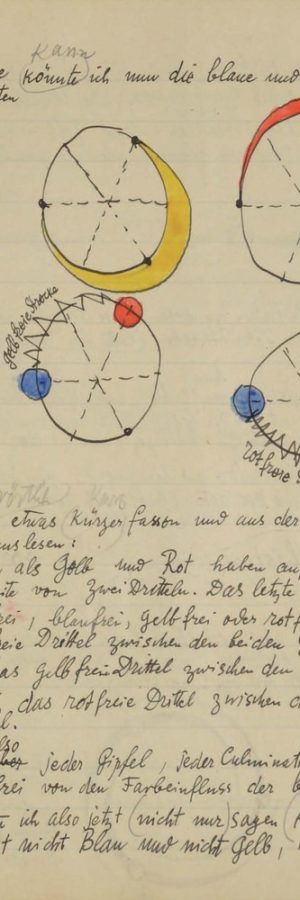 Kann
könnte ich nun die blaue und
ten
gelbfreie Strecke
rotfreie
Kurz
etwas Kürzer fassen und aus der
auslesen:
als Gelb und Rot haben
ite von zwei Dritteln. Das letzte
rei, blaufrei, gelbfrei oder rotf
eie Drittel zwischen den beiden
as gelbfreie Drittel zwischen den
das rotfreie Drittel zwischen d
l.
also
aber jeder Gipfel, jeder Culminat
frei von den Farbeinfluss der b
ich also jetzt (nicht nur) sagen (
t nicht Blau und nicht Gelb,